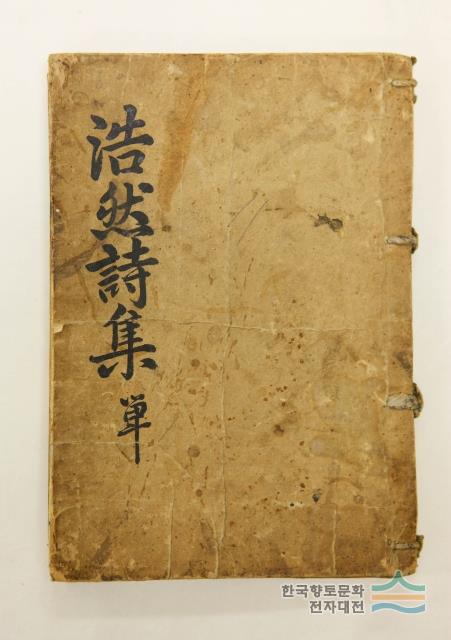 浩然詩集 単
한국향토문화
전자대전